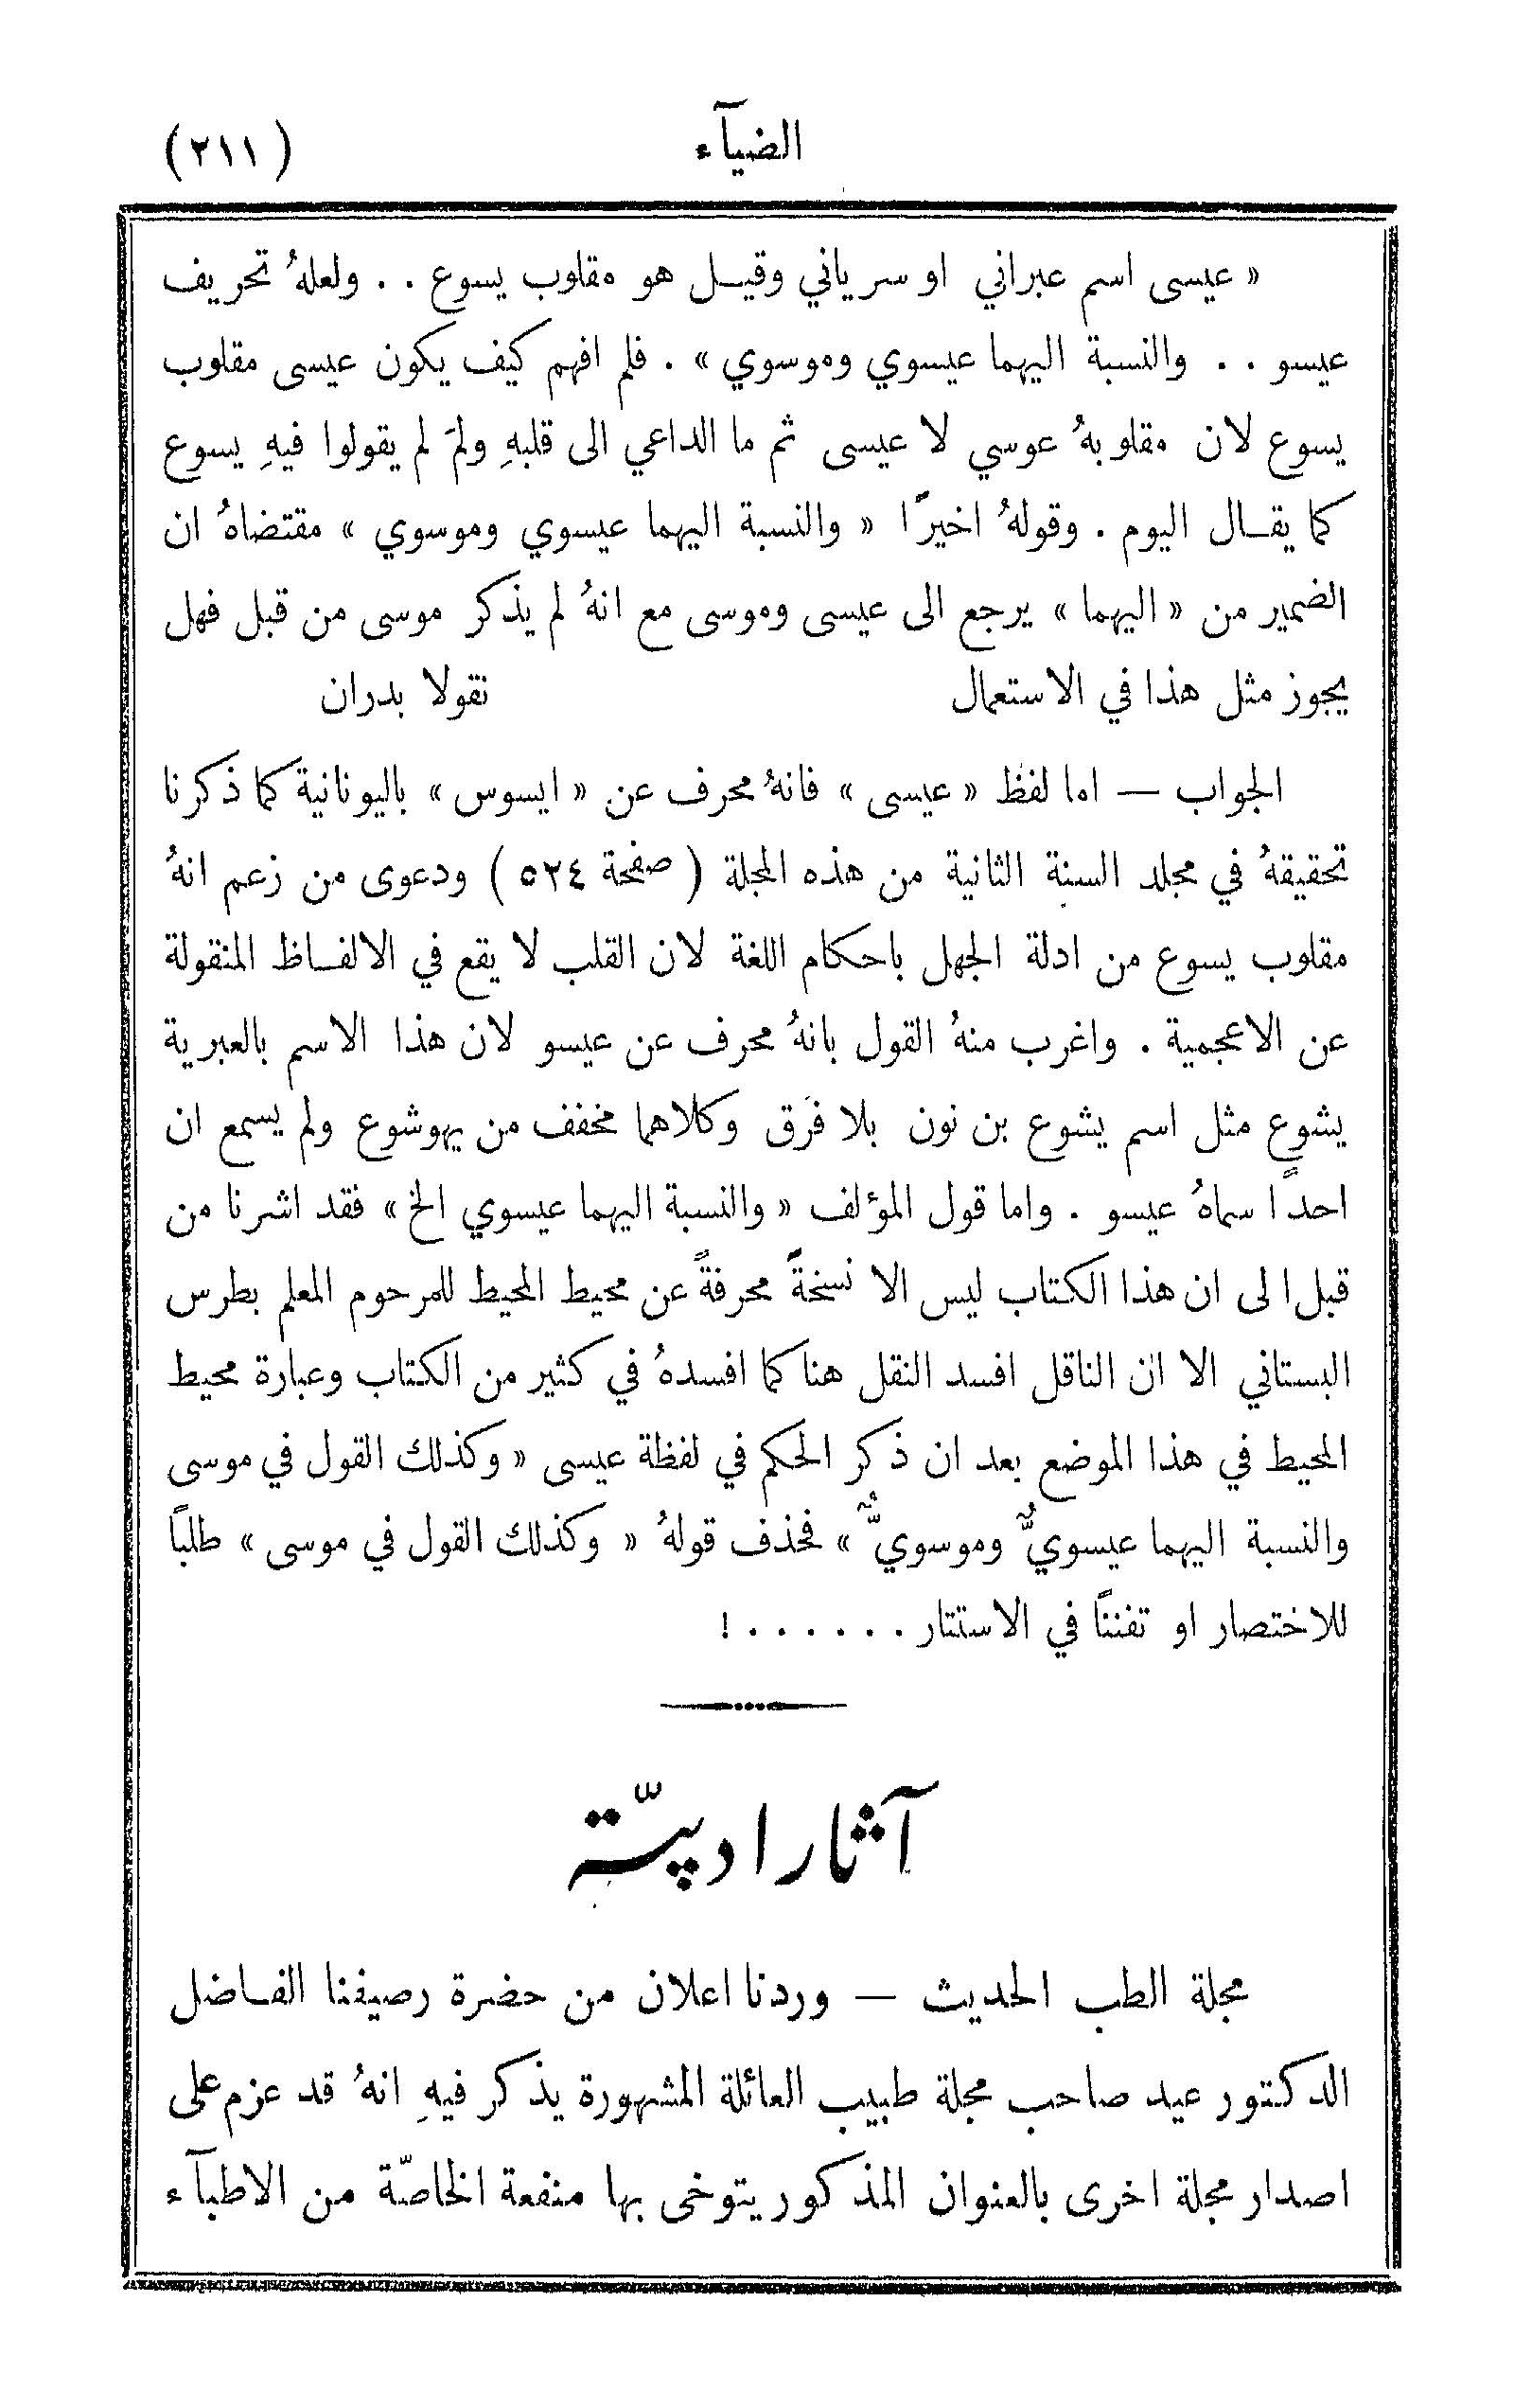 الضيآء
(٢١١)
« عيسى اسم عبراني او سرياني وقيل هو مقلوب يسوع . . ولعلهُ تحريف
عيسو . . والنسبة اليهما عيسوي وموسوي » . فلم افهم كيف يكون عيسى مقلوب
يسوع لان مقلوبهُ عوسي لا عيسى ثم ما الداعي الى قلبهِ ولمَ لم يقولوا فيهِ يسوع
كما يقال اليوم . وقولهُ اخيرًا « والنسبة اليهما عيسوي وموسوي » مقتضاهُ ان
الضمير من « اليهما » يرجع الى عيسى وموسى مع انهُ لم يذكر موسى من قبل فهل
يجوز مثل هذا في الاستعمال نقولا بدران
الجواب — اما لفظ « عيسى » فانهُ محرف عن « ايسوس » باليونانية كما ذكرنا
تحقيقهُ في مجلد السنة الثانية من هذه المجلة ( صفحة ٥٢٤ ) ودعوى من زعم انهُ
مقلوب يسوع من ادلة الجهل باحكام اللغة لان القلب لا يقع في الالفاظ المنقولة
عن الاعجمية . واغرب منهُ القول بانهُ محرف عن عيسو لان هذا الاسم بالعبرية
يشوع مثل اسم يشوع بن نون بلا فَرق وكلاهما مخفف من يهوشوع ولم يسمع ان
احدًا سماهُ عيسو . واما قول المؤلف « والنسبة اليهما عيسوي الخ » فقد اشرنا من
قبل الى ان هذا الكتاب ليس الا نسخةً محرفةً عن محيط المحيط للمرحوم المعلم بطرس
البستاني الا ان الناقل افسد النقل هنا كما افسدهُ في كثير من الكتاب وعبارة محيط
المحيط في هذا الموضع بعد ان ذكر الحكم في لفظة عيسى « وكذلك القول في موسى
والنسبة اليهما عيسويٌّ وموسويٌّ » فحذف قولهُ « وكذلك القول في موسى » طلبًا
للاختصار او تفننًا في الاستتار . . . . . . !
آثار ادبيّة
مجلة الطب الحديث — وردنا اعلان من حضرة رصيفنا الفاضل
الدكتور عيد صاحب مجلة طبيب العائلة المشهورة يذكر فيهِ انهُ قد عزم على
اصدار مجلة اخرى بالعنوان المذكور يتوخى بها منفعة الخاصّة من الاطبآء